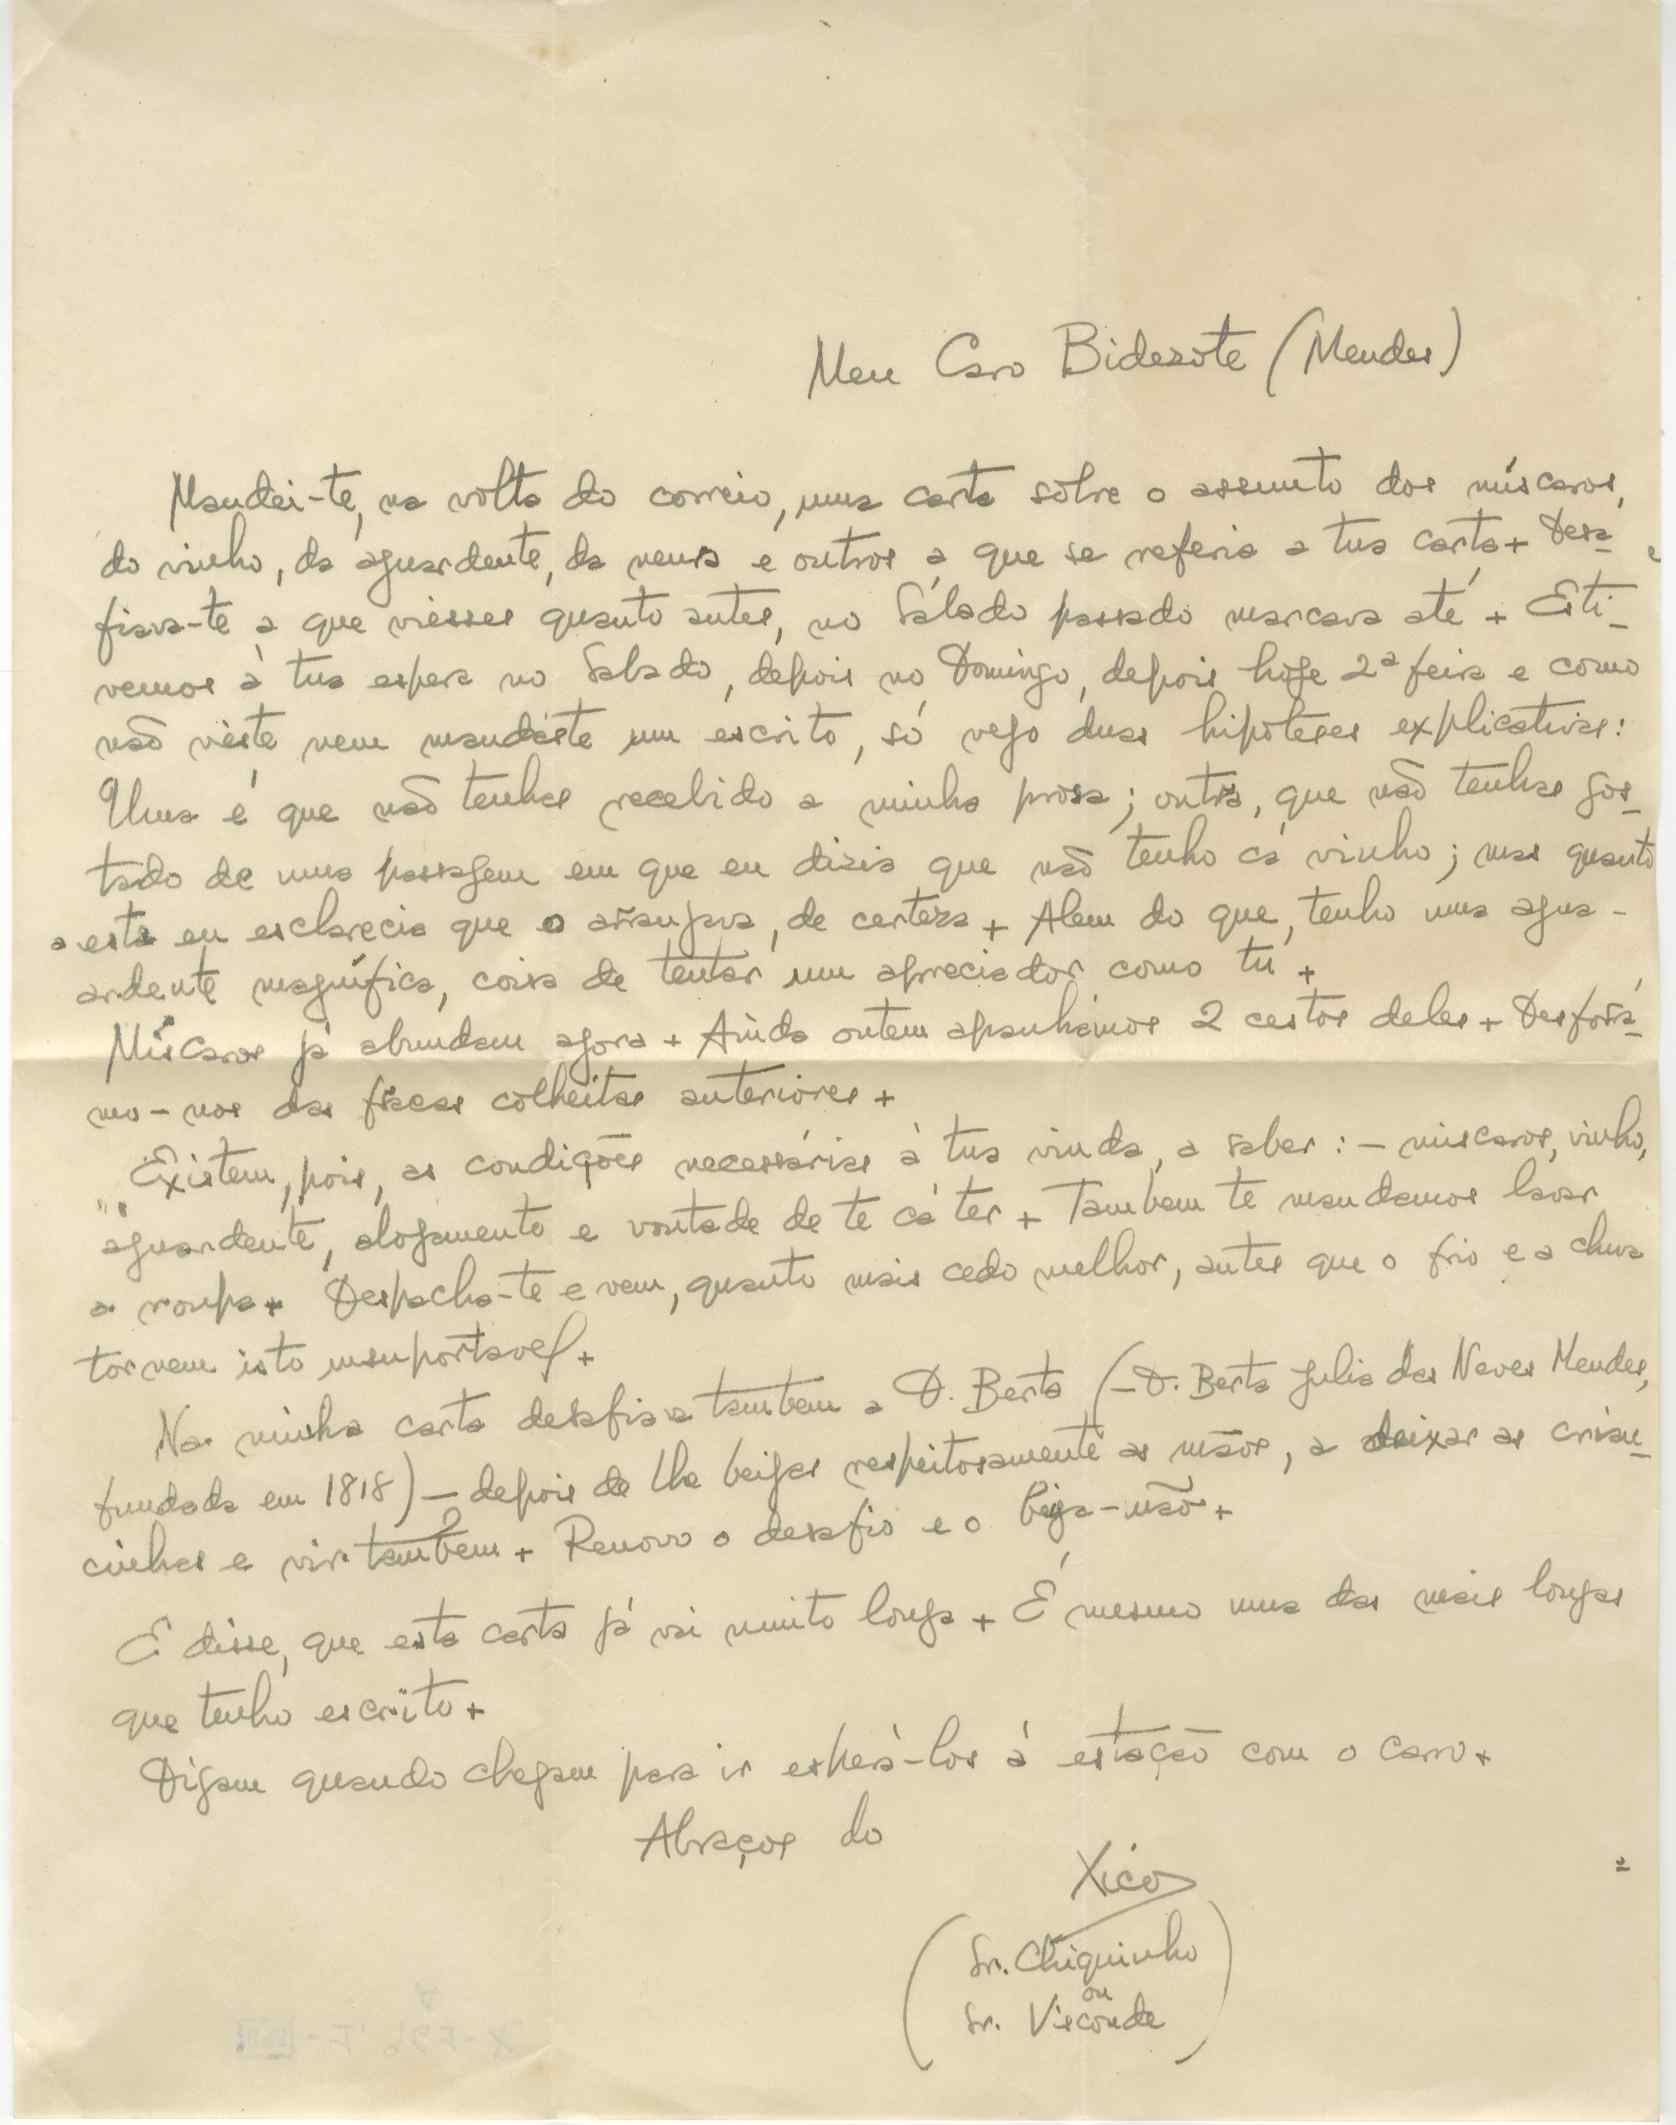 Meu Caro Bidezote (Mendes)
Mandei-te, na volta do correio, uma carta sôbre o assunto dos míscaros,
do vinho, da aguardente, da neura e outros a que se referia a tua carta + Desa-
fiava-te a que viesses quanto antes, no Sábado passado marcava até + Esti-
vemos à tua espera no Sabado, depois no Domingo, depois hoje 2ª feira e como
não viéste nem mandáste um escrito, só vejo duas hipóteses explicativas:
Uma é que não tenhas recebido a minha prosa; outra, que não tenhas gos-
tado de uma passagem em que eu dizia que não tenho cá vinho; mas quanto
a esta eu esclarecia que o arranjava, de certeza + Alem do que, tenho uma agua-
ardente magnífica, coisa de tentar um apreciador como tú +
Míscaros já abundam agora + Ainda ontem apanhámos 2 cestos deles + Desforrá-
mo-nos das fracas colheitas anteriores +
Existem, pois, as condições necessárias à tua vinda, a saber: - miscaros, vinho,
aguardente, alojamento e vontade de te cá ter + Tambem te mandamos lavar
a roupa + Despacha-te e vem, quanto mais cedo melhor, antes que o frio e a chuva
tornem isto insuportavel +
Na minha carta desafiava tambem a D. Berta (-D. Berta Julia das Neves Mendes,
fundada em 1818) - depois de lhe beijar respeitosamente as mãos, a deixar as crian-
cinhas e vir tambem + Renovo o desafio e o beija-mão +
E disse, que esta carta já vai muito longa + É mesmo uma das mais longas
que tenho escrito +
Digam quando chegam para ir esperá-los á estação com o carro +
Abraços do
Xico
(Sr. Chiquinho
ou
Sr. Visconde)